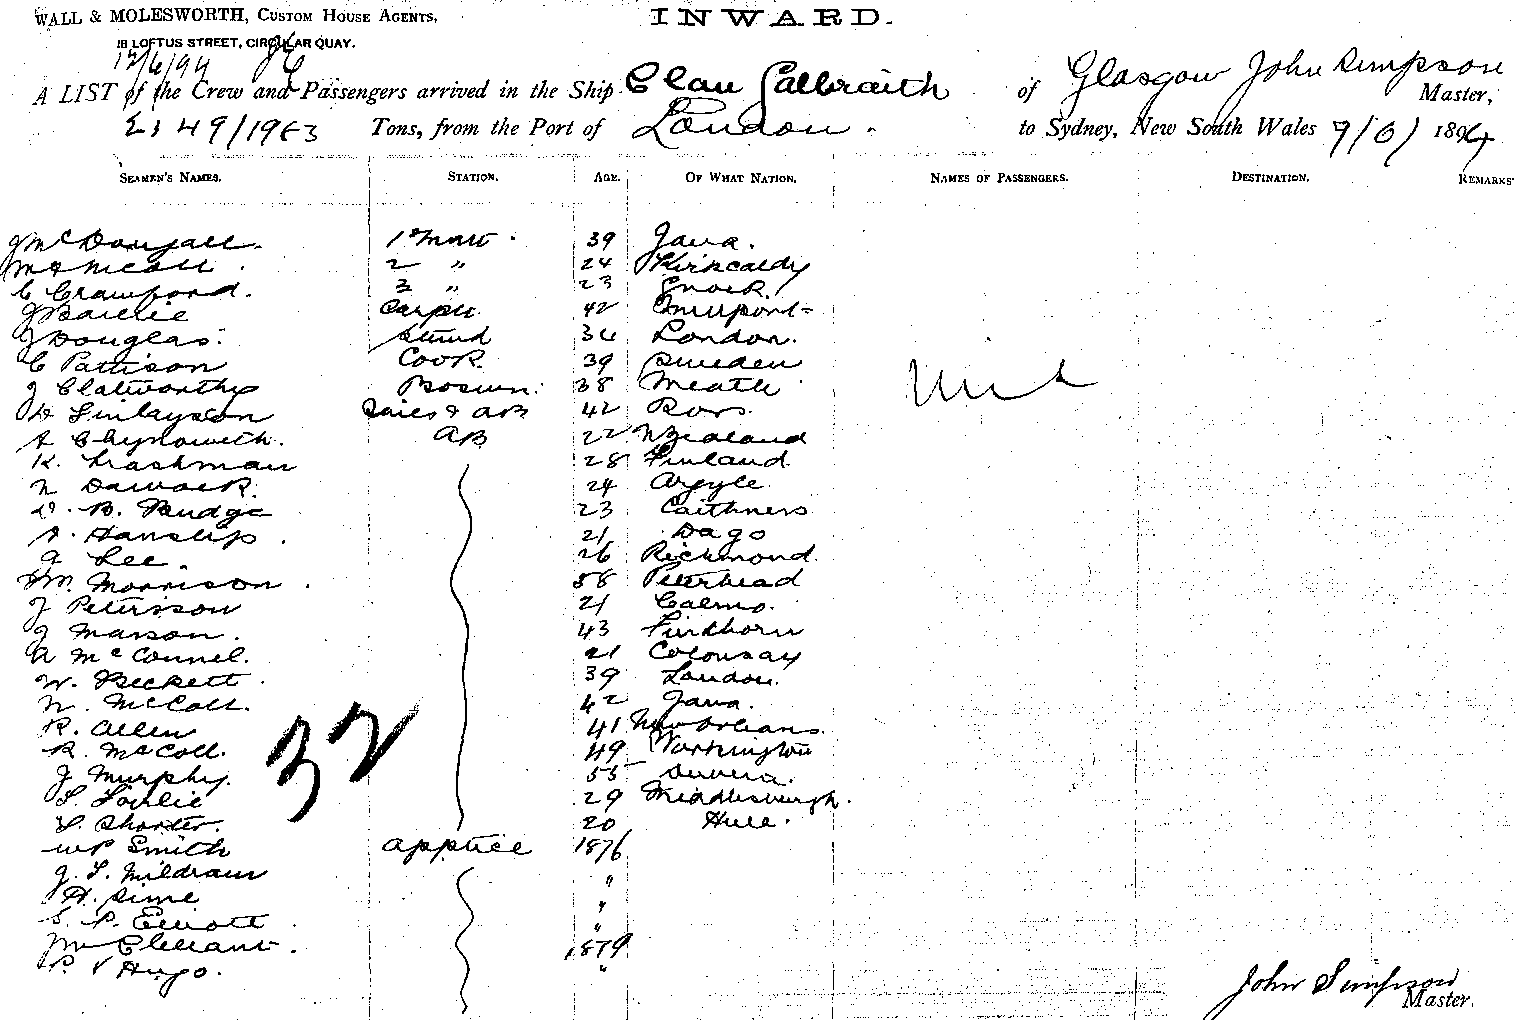 WALL & MOLESWORTH, CUSTOM HOUSE AGENTS, INWARD.
18 LOFTUS STREET, CIRCULAR QUAY.
12/6/94
A LIST of the Crew and Passengers arrived in the Ship Clan Galbraith of Glasgow John Simpson Master,
49/1963 Tons, from the Port of London. to Sydney, New South Wales 9/6/ 1894
SEAMEN'S NAMES. STATION. AGE. OF WHAT NATION. NAMES OF PASSENGERS. DESTINATION. REMARKS
J McDougall. 1st Mate. 39
McNicoll. 2 " 24 Kirkcaldy
C Crawford. 3 " 23
J Baillie Carptr. 42
J Douglas. Stwd 36 London.
C Pattison Cook. 39 Sweden
J Clatworthy Bosun. 38 Meath
D Finlayson Sailr & AB 42 Ross.
A Chynoweth. AB 22 N Zealand
K. Lrashman 28 Finland.
N 24 Argyle
D. B. Budge 23 Caithness
A. Hanslip. 21 Dago
A Lee. 26 Richmond.
Wm. Morrison. 58 Peterhead
J Peterson 21 Calmo.
J Manson. 43 Findhorn
A McConnel. 21 Colonsay
W. Beckett. 39 London.
N. McColl. 42
R. Allen 41 New Orleans.
R. McColl. 49 Workington
J Murphy. 55
29 Middlesburgh.
Shorter. 20 Hull.
WP Smith apptice 1876
J. L. Mildram "
H. Sime "
S. P. Elliott "
1879
P. V Hugo. "
32
Nil
John Simpson
Master.